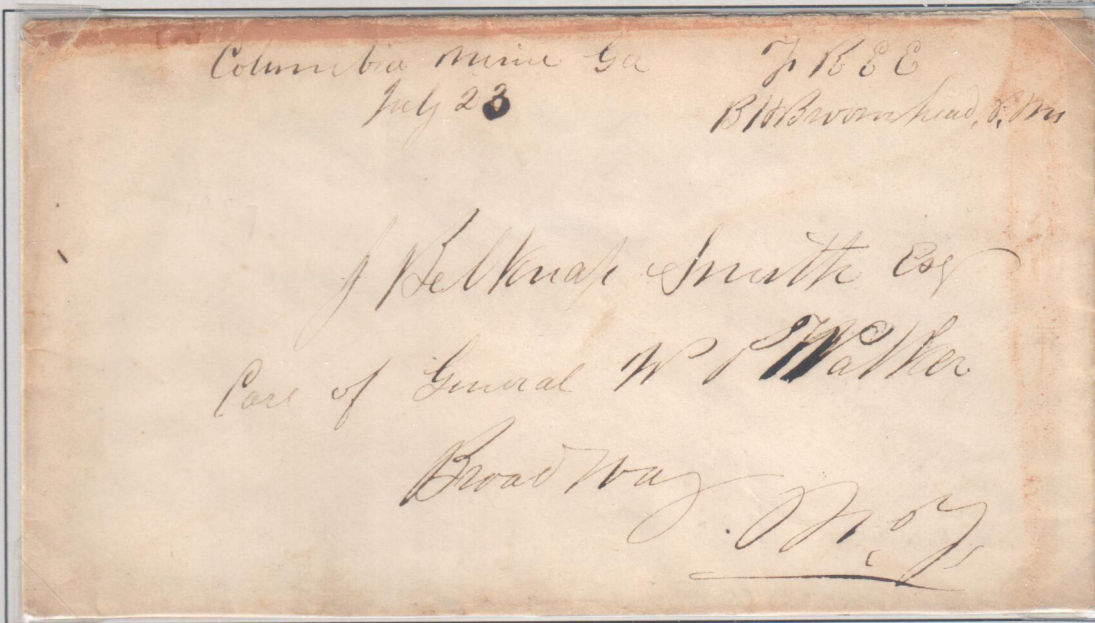 Columbia Mine Ga
July 23
FREE
B H Broomhead, P. M
J Belknap Smith Esq
Care of General W Walker
Broad Way
N. Y.